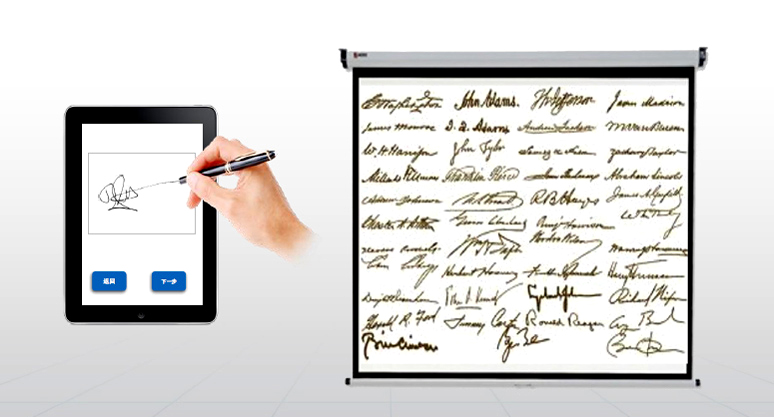 G Washington John Adams. Th Jefferson James Madison
James Monroe J. Q. Adams Andrew Jackson M Van Buren
W. H. Harrison John Tyler James K. Polk Zachary Taylor
Millard Fillmore Franklin Pierce James Buchanan Abraham Lincoln
Andrew Johnson U. S. Grant R B Hayes James A. Garfield
Chester A. Arthur Grover Cleveland Benj Harrison Wm McKinley
Theodore Roosevelt Wm H Taft Woodrow Wilson Warren G Harding
Calvin Coolidge Herbert Hoover Franklin D Roosevelt Harry Truman
Dwight D Eisenhower John F. Kennedy Lyndon B. Johnson Richard Nixon
Gerald R. Ford Jimmy Carter Ronald Reagan G Bush
Bill Clinton G Bush
返回 下一步